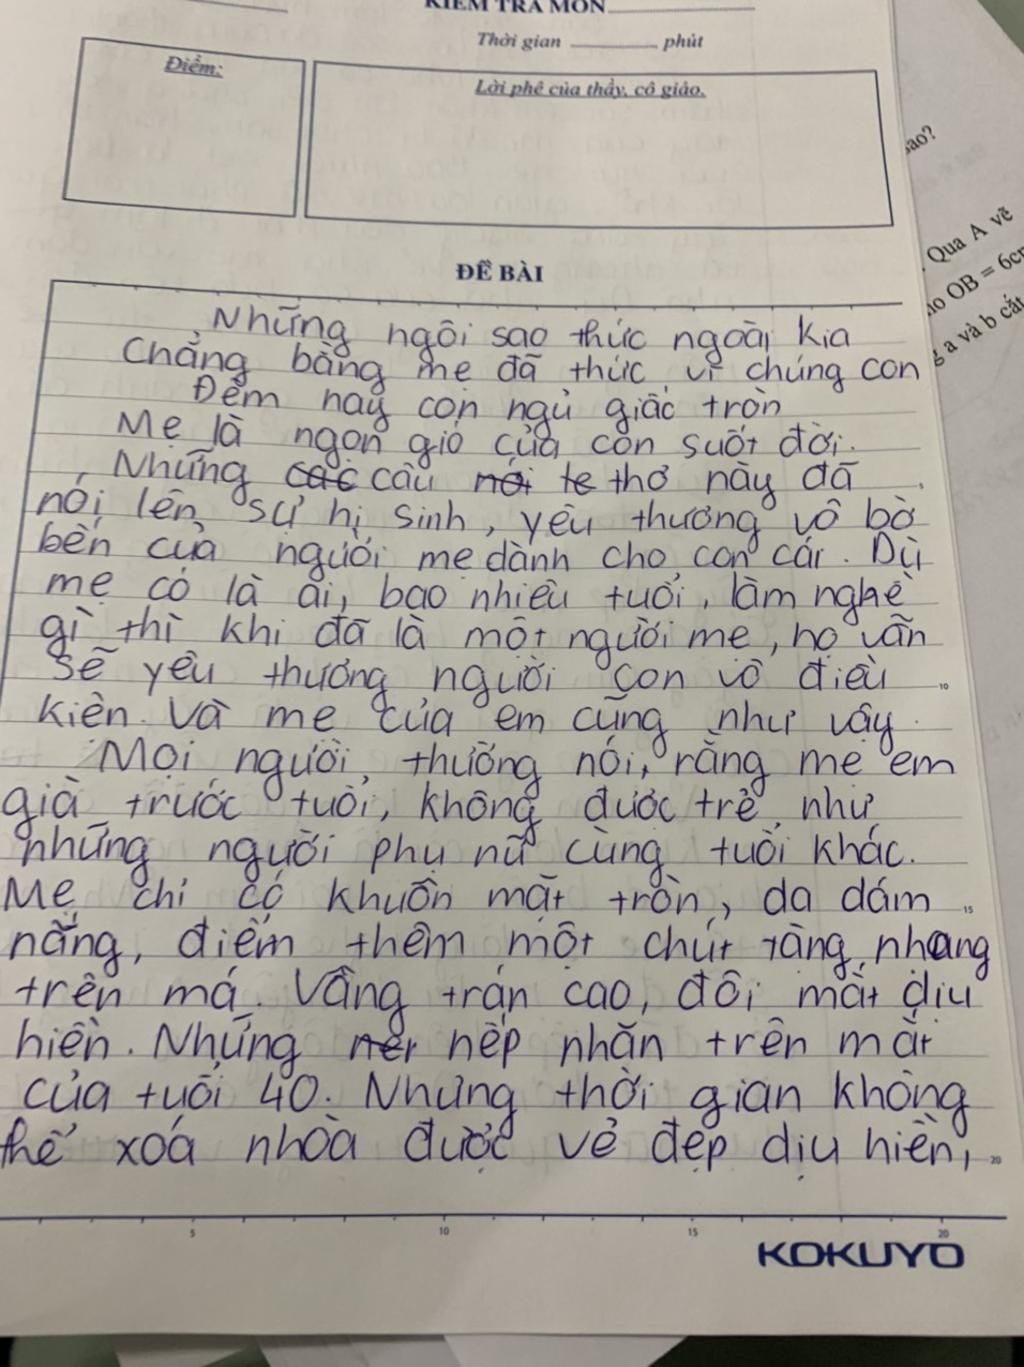 KIỂM TRA MÔN
Thời gian phút
Điểm:
Lời phê của thầy, cô giáo.
sao?
Qua A vẽ
ho OB = 6cm
g a và b cắt
ĐỀ BÀI
Những ngôi sao thức ngoài kia
Chẳng bằng mẹ đã thức vì chúng con
Đêm nay con ngủ giấc tròn
Mẹ là ngọn gió của con suốt đời.
Những các câu nói te thơ này đã
nói lên sự hi sinh, yêu thương vô bờ
bến của người mẹ dành cho con cái. Dù
mẹ có là ai, bao nhiêu tuổi, làm nghề
gì thì khi đã là một người mẹ, họ vẫn
sẽ yêu thương người con vô điều
kiện. Và mẹ của em cũng như vậy.
Mọi người thường nói, rằng mẹ em
già trước tuổi, không được trẻ như
những người phụ nữ cùng tuổi khác.
Mẹ chỉ có khuôn mặt tròn, da dám
nắng, điểm thêm một chút tàng nhang
trên má. Vầng trán cao, đôi mắt dịu
hiền. Những nếp nhăn trên mắt
của tuổi 40. Nhưng thời gian không
thể xoá nhoà được vẻ đẹp dịu hiền,
10
15
20
5 10 15 20
KOKUYO